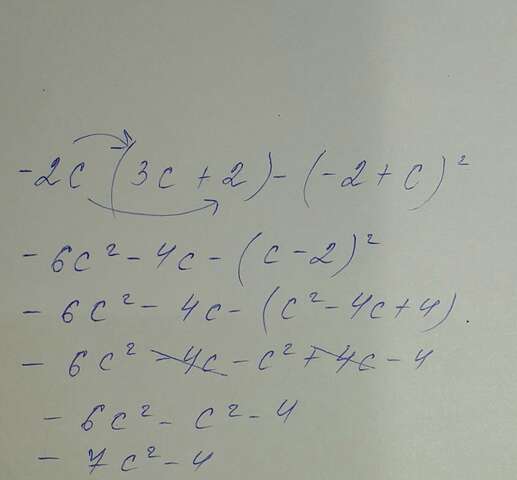 -2c (3c + 2) - (-2 + c)²
- 6c² - 4c - (c - 2)²
- 6c² - 4c - (c² - 4c + 4).
- 6c² - 4c - c² + 4c - 4
- 6c² - c² - 4
- 7c² - 4